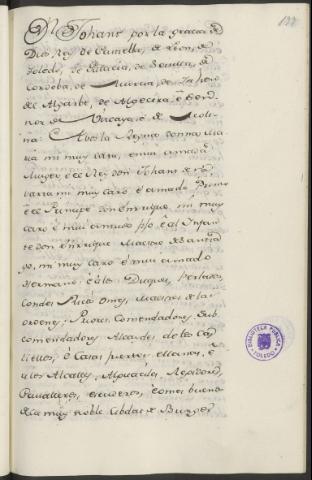 132
Dn Johans por la gracia de
Dios, Rey de Castiella, de Leon, de
Toledo, de Galicia, de Sevilla, de
Cordoba, de Murcia, de Jahen
del Algarbe, de Algecira, é Señor
de Vizcaya, é de Molina
A vos la Reyna Donna Maria
mi muy cara, é muy amada
Muger, é el Rey don Johans de Navarra
mi muy caro é amado Primo
é el Principe don Enrrique, mi muy
caro é mui amado fijo é al Infante
don Enrrique Maestre de Santiago,
mi muy caro é mui amado
Hermano é á los Duques, Perlados,
Condes Ricos Omes, Maestres de las
Ordenes, Priores, Comendadores, Sub
comendadores, Alcaides de los Castiellos,
é Casas fuertes, é llanas, é
á los Alcalles, Alguaciles, Regidores,
Cavalleros, escuderos, é omes buenos
de la muy noble Cibdat de Burgos
BIBLIOTECA PUBLICA
TOLEDO